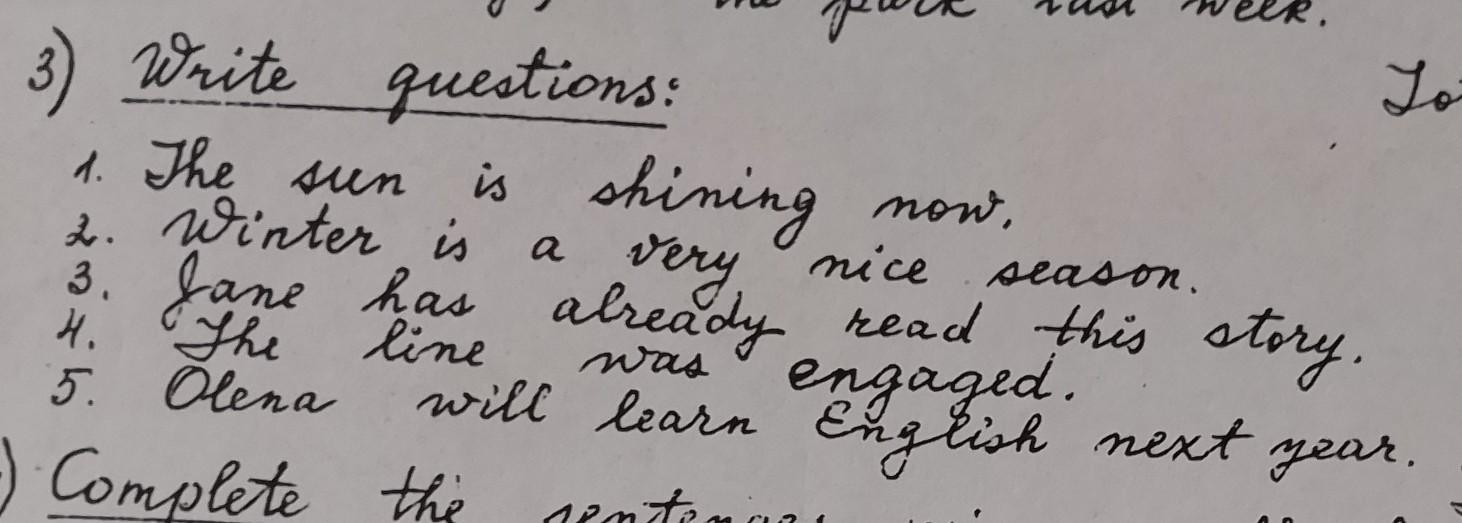 the park last week.
3) Write questions:
To
1. The sun is shining now.
2. Winter is a very nice season.
3. Jane has already read this story.
4. The line was engaged.
5. Olena will learn English next year.
) Complete the sentences